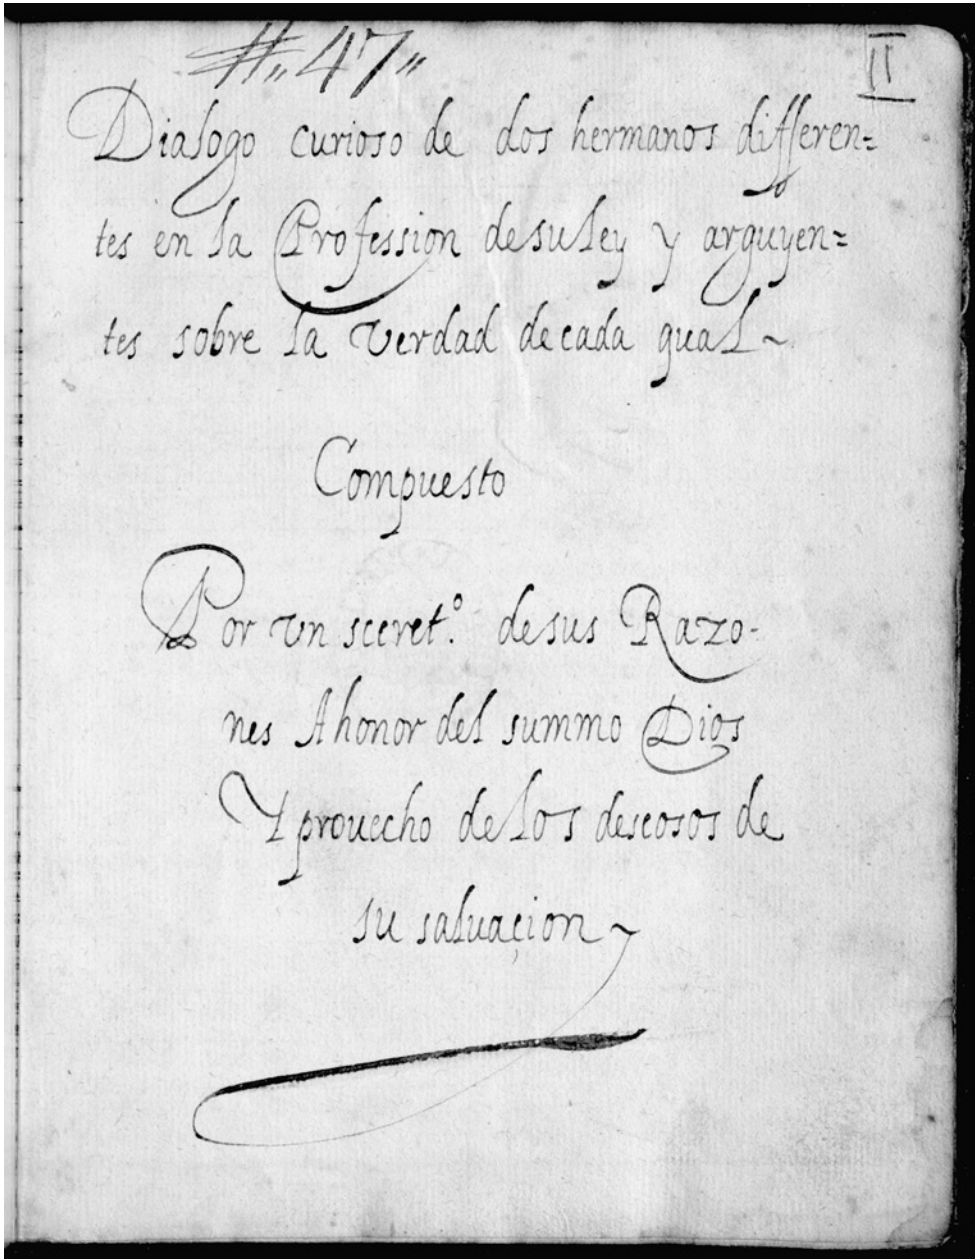 #„47„
II
Dialogo curioso de dos hermanos differen=
tes en la Profession desuley y arguyen=
tes sobre la verdad decada qual~
Compuesto
Por vn sceret.º desus Razo-
nes Ahonor del summo Dios
Y prouecho delos deseosos de
su saluaçion~